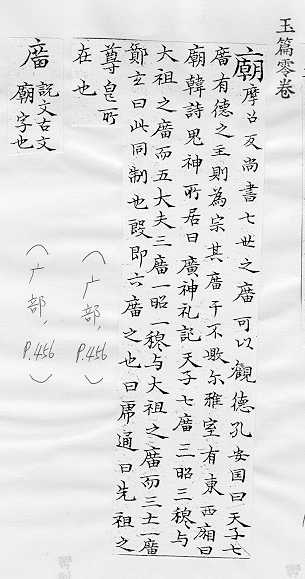 玉篇零卷
廟摩召反尚書七世之庿可以觀德孔安囯曰天子七
庿有德之主則為宗其庿不毀尒雅室有東西廂曰
廟韓詩鬼神所居曰庿神礼記天子七庿三昭三穆与
大祖之庿而五大夫三庿一昭穆与大祖之庿而三士一庿
鄭玄曰此同制也殷即六庿之也曰虎通曰先祖之
尊皃所
在也
庿說文古文
廟字也
（广部，P.456）
（广部，P.456）